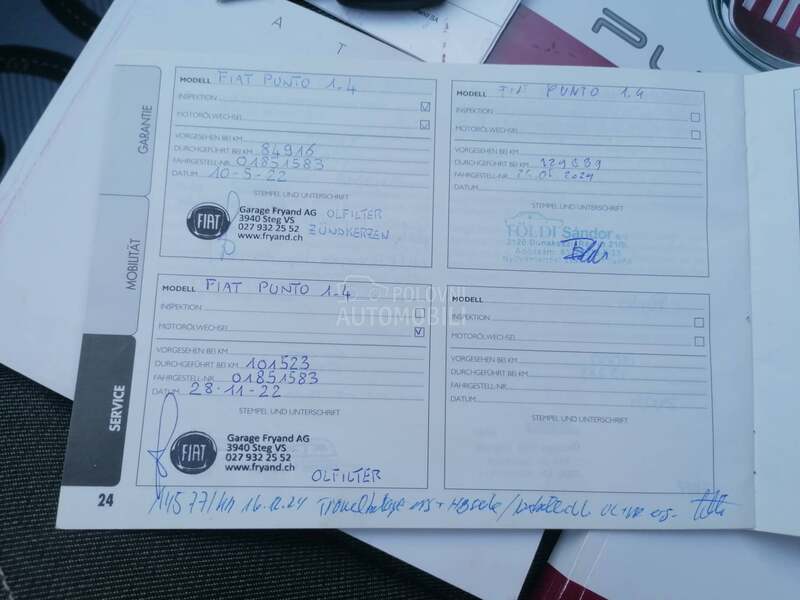 A
T
GARANTIE
MOBILITÄT
SERVICE
MODELL FIAT PUNTO 1.4
INSPEKTION
MOTORÖLWECHSEL
VORGESEHEN BEI KM
DURCHGEFÜHRT BEI KM 84916
FAHRGESTELL-NR. 01851583
DATUM 10-5-22
STEMPEL UND UNTERSCHRIFT
FIAT
Garage Fryand AG
3940 Steg VS
027 932 25 52
www.fryand.ch
OLFILTER
ZÜNDKERZEN
MODELL PUNTO 1.4
INSPEKTION
MOTORÖLWECHSEL
VORGESEHEN BEI KM
DURCHGEFÜHRT BEI KM
FAHRGESTELL-NR.
DATUM
STEMPEL UND UNTERSCHRIFT
FÖLDI Sándor
MODELL FIAT PUNTO 1.4
INSPEKTION
MOTORÖLWECHSEL
VORGESEHEN BEI KM
DURCHGEFÜHRT BEI KM 101523
FAHRGESTELL-NR. 01851583
DATUM 28-11-22
STEMPEL UND UNTERSCHRIFT
FIAT
Garage Fryand AG
3940 Steg VS
027 932 25 52
www.fryand.ch
OLFILTER
MODELL
INSPEKTION
MOTORÖLWECHSEL
VORGESEHEN BEI KM
DURCHGEFÜHRT BEI KM
FAHRGESTELL-NR.
DATUM
STEMPEL UND UNTERSCHRIFT
POLOVNI
AUTOMOBILI
24